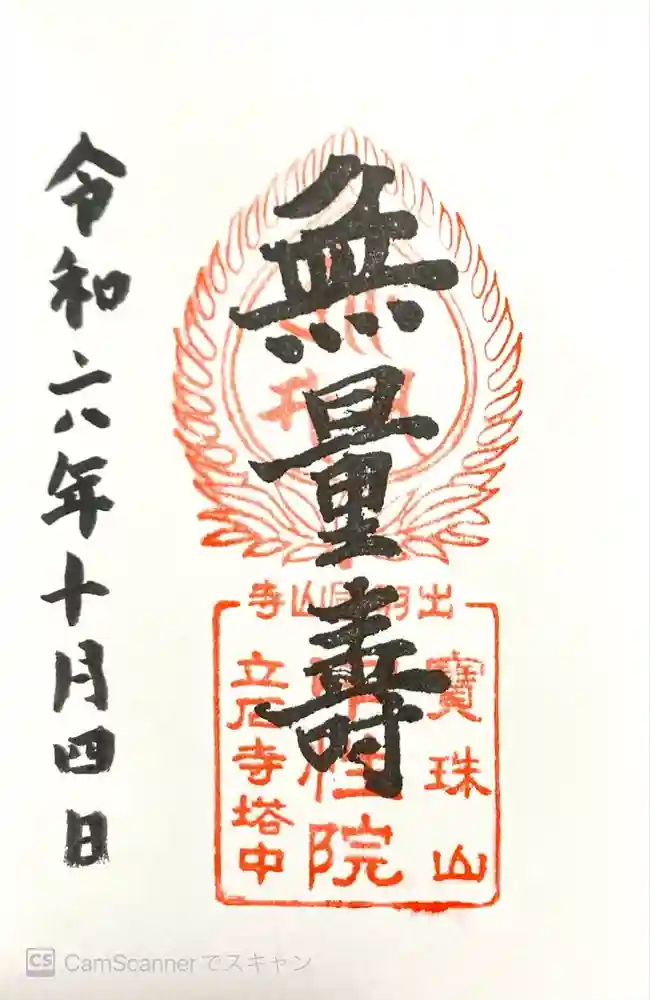 無量壽
出羽國山寺
寶珠山
性院
立石寺塔中
令和六年十月四日
CS CamScannerでスキャン